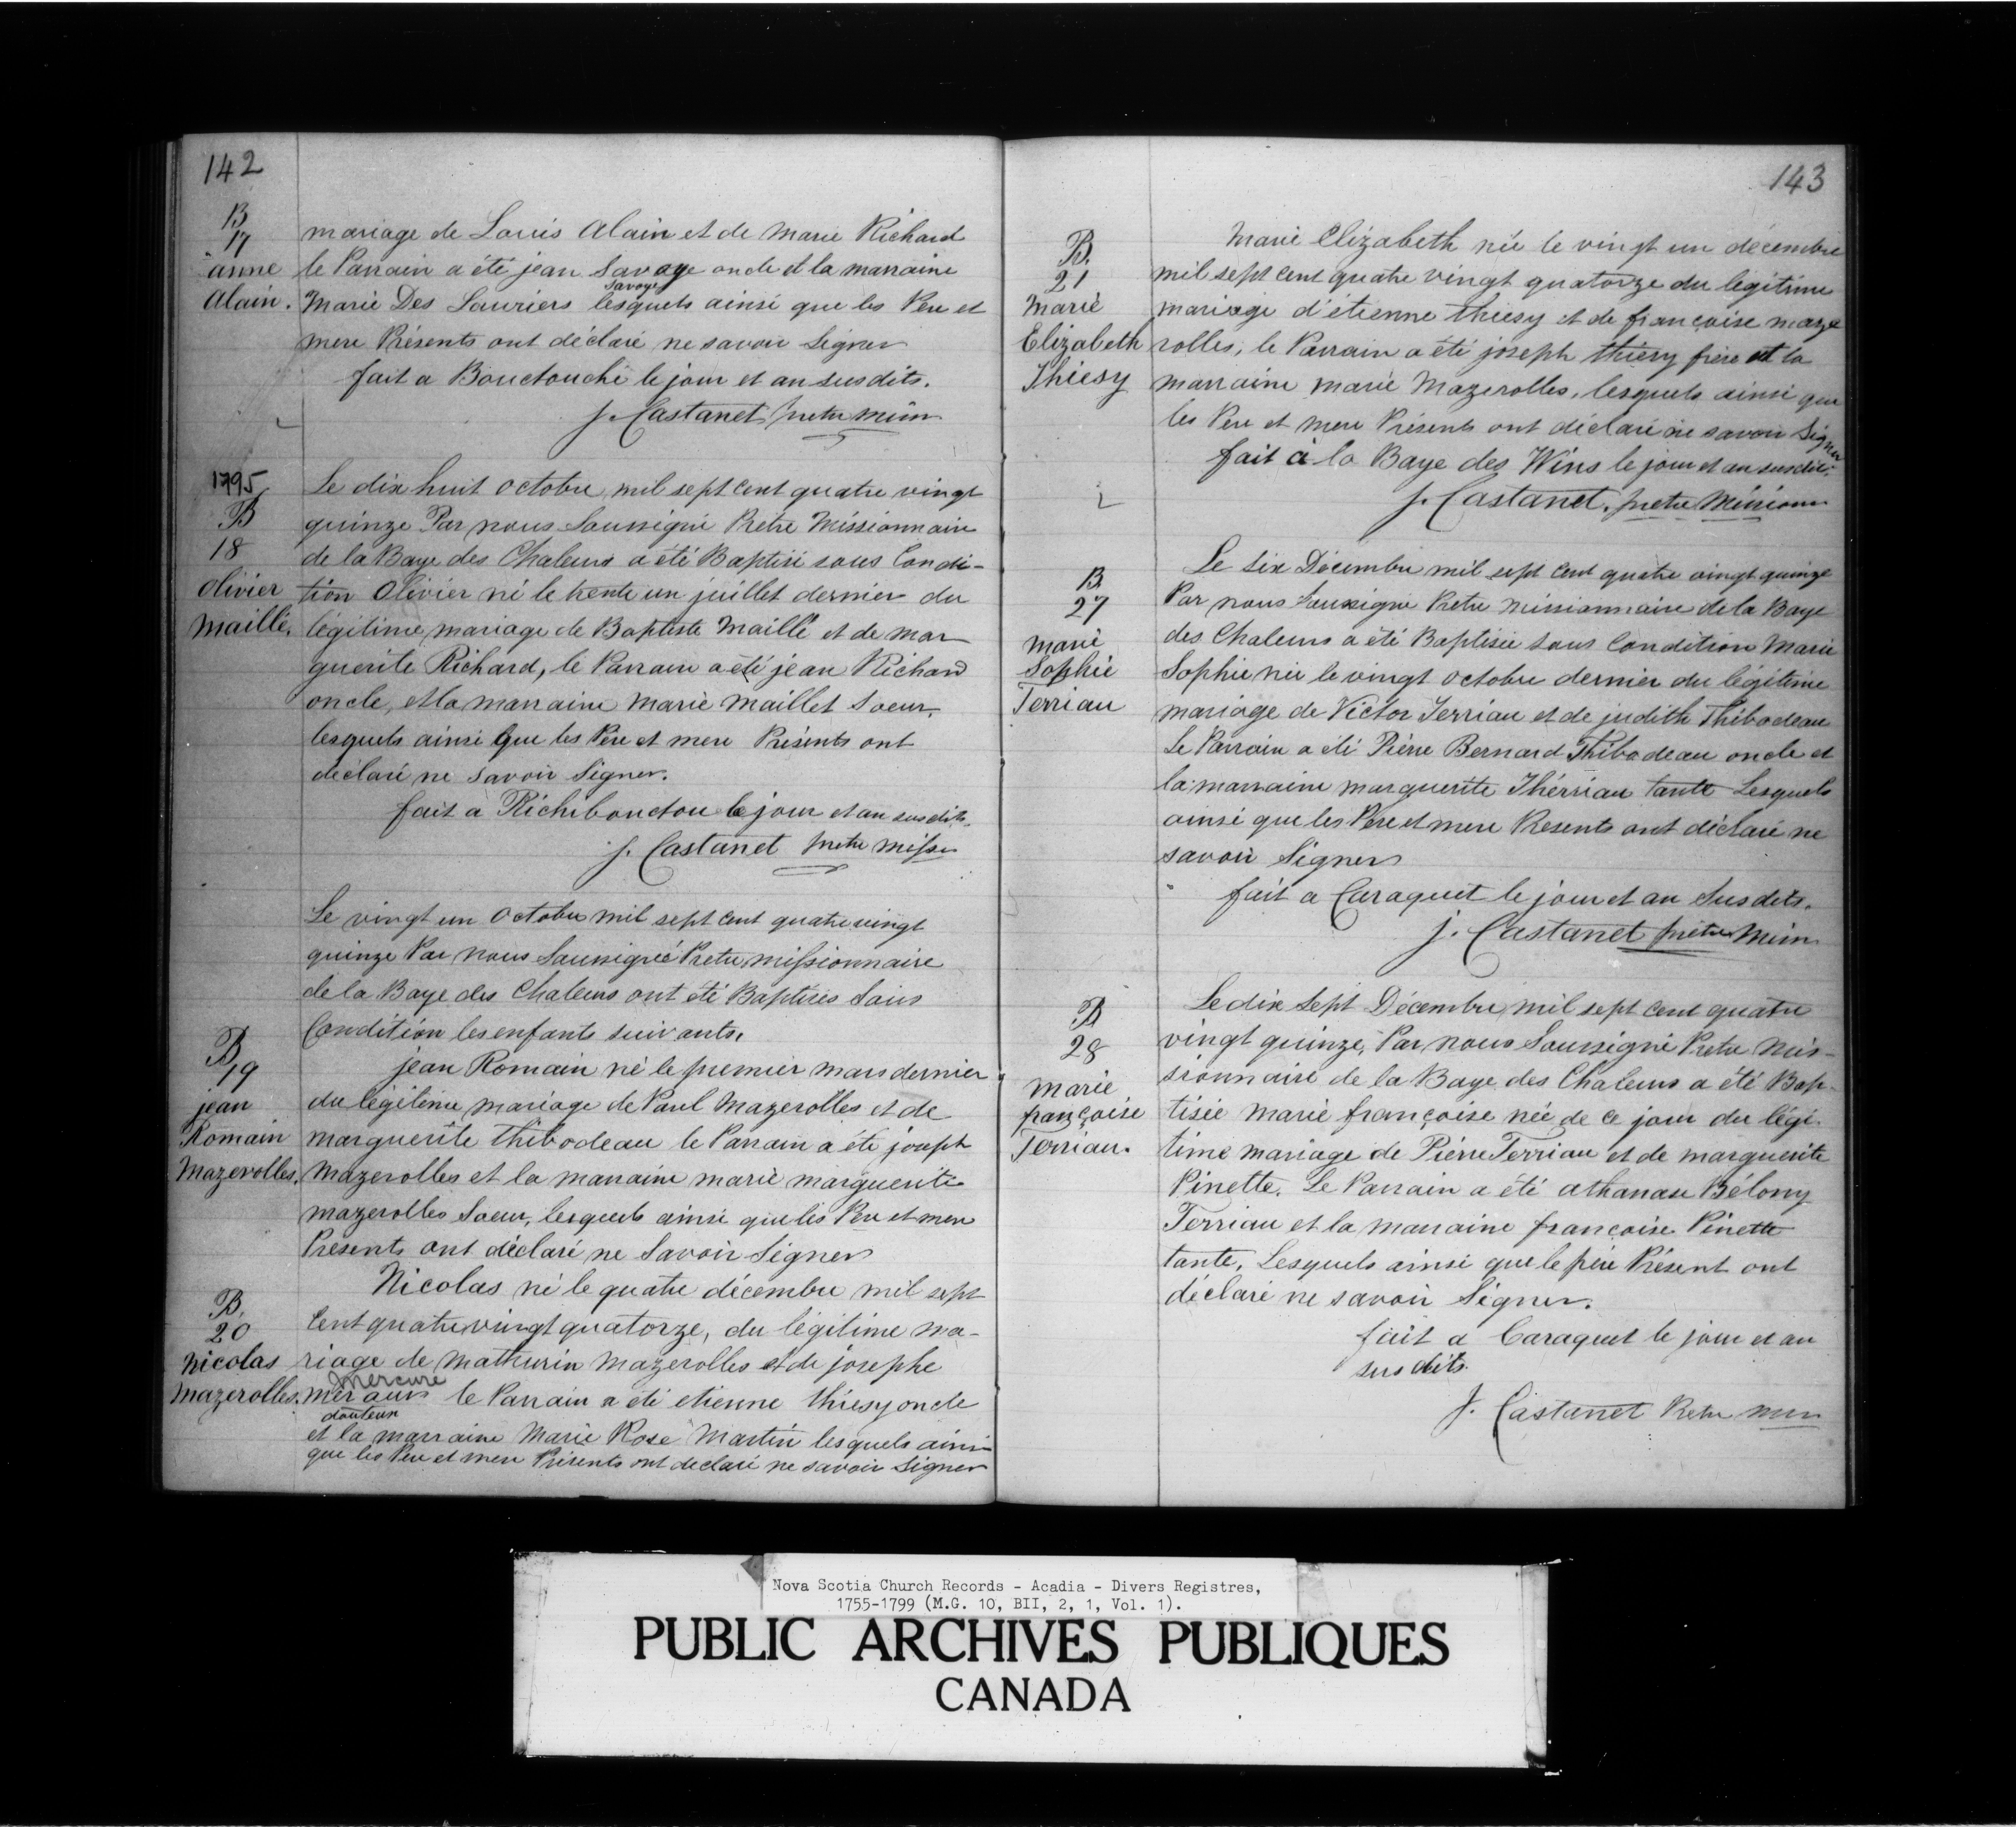 142
B
17
anne
alain.
mariage de Louis Alain et de Marie Richard
le Parrain a été jean Savoye oncle et la marraine
Savoye
Marie Des Lauriers lesquels ainsi que les Pere et
mere Présents ont déclaré ne savoir signer
fait a Bouctouche le jour et an susdits.
J. Castanet pretre miss
1795
B
18
Olivier
Maillé.
Le dix huit octobre mil sept cent quatre vingt
quinze Par nous Soussigné Pretre Missionnaire
de la Baye des Chaleurs a été Baptisé sous Condi-
tion Olivier né le trente un juillet dernier du
légitime mariage de Baptiste Maillé et de mar
guerite Richard, le Parrain a été jean Richard
oncle, et la marraine Marie Maillet Soeur,
lesquels ainsi que les Pere et mere Présents ont
déclaré ne savoir Signer.
fait a Richibouctou le jour et an susdits.
J. Castanet pretre miss
Le vingt un Octobre mil sept cent quatre vingt
quinze Par nous Soussigné Pretre missionnaire
de la Baye des Chaleurs ont été Baptisés Sous
Condition les enfants suivants.
B
19
jean
Romain
Mazerolles.
jean Romain né le premier mars dernier
du légitime mariage de Paul Mazerolles et de
marguerite thibodeau le Parrain a été joseph
Mazerolles et la marraine marie marguerite
mazerolles Soeur, lesquels ainsi que les Pere et mere
Présents ont déclaré ne Savoir Signer
B.
20
Nicolas
Mazerolles.
Nicolas né le quatre décembre mil sept
Cent quatre vingt quatorze, du légitime ma-
riage de Mathurin Mazerolles et de josephe
Mercure
le Parrain a été etienne thiesy oncle
douteux
et la marraine Marie Rose Martin lesquels ainsi
que les Pere et mere Présents ont declaré ne savoir Signer
143
B.
21
Marie
Elizabeth
Thiesy
Marie Elizabeth née le vingt un décembre
mil sept cent quatre vingt quatorze du légitime
mariage d'étienne thiesy et de françoise maze
rolles, le Parrain a été joseph thiesy frère et la
marraine marie Mazerolles, lesquels ainsi que
les Pere et mere Présents ont déclaré ne savoir Signer
fait à la Baye des Wins le jour et an susdits.
J. Castanet, pretre Mission
B.
27
Marie
Sophie
Terriau
Le six Décembre mil sept cent quatre vingt quinze
Par nous Soussigné Pretre missionnaire de la Baye
des Chaleurs a été Baptisée sous Condition Marie
Sophie née le vingt octobre dernier du légitime
mariage de Victor Terriau et de judith Thibodeau
Le Parrain a été Pierre Bernard Thibodeau oncle et
la marraine marguerite Thérriau tante Lesquels
ainsi que les Pere et mere Présents ont déclaré ne
savoir Signer
fait a Caraquet le jour et an Susdits.
J. Castanet pretre Miss
B
28
Marie
françoise
Terriau.
Le dix Sept Décembre mil sept cent quatre
vingt quinze, Par nous Soussigné Pretre Mis-
sionnaire de la Baye des Chaleurs a été Bap-
tisée Marie françoise née de ce jour du légi-
time mariage de Pierre Terriau et de marguerite
Pinette. Le Parrain a été athanase Bélony
Terriau et la marraine françoise Pinette
tante, Lesquels ainsi que le père Présent ont
déclaré ne savoir Signer.
fait a Caraquet le jour et an
susdits.
J. Castanet Pretre miss
Nova Scotia Church Records - Acadia - Divers Registres,
1755-1799 (M.G. 10, BII, 2, 1, Vol. 1).
PUBLIC ARCHIVES PUBLIQUES
CANADA